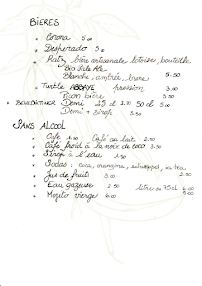 BIERES
• Corona 5.00
• Desperado 5.00
• Ratz bière artisanale lotoise bouteille
Bio Pale Ale
Blanche, ambrée, brune 5.50
• Turtle ABBAYE pression 3.00
Picon bière
• BENEDICTINER Demi 25 cl 2.50 50 cl 5.00
Demi + sirop 3.50
SANS ALCOOL
• Café 1.50 Café au lait 2.50
• Café froid à la noix de coco 3.50
• Sirop à l'eau 1.50
• Sodas: coca, orangina, schweppes, ice tea 2.50
• Jus de fruits 3.00
• Eau gazeuse 2.50 litre ou 75 cl 4.00
• Mojito vierge 6.00 5.00